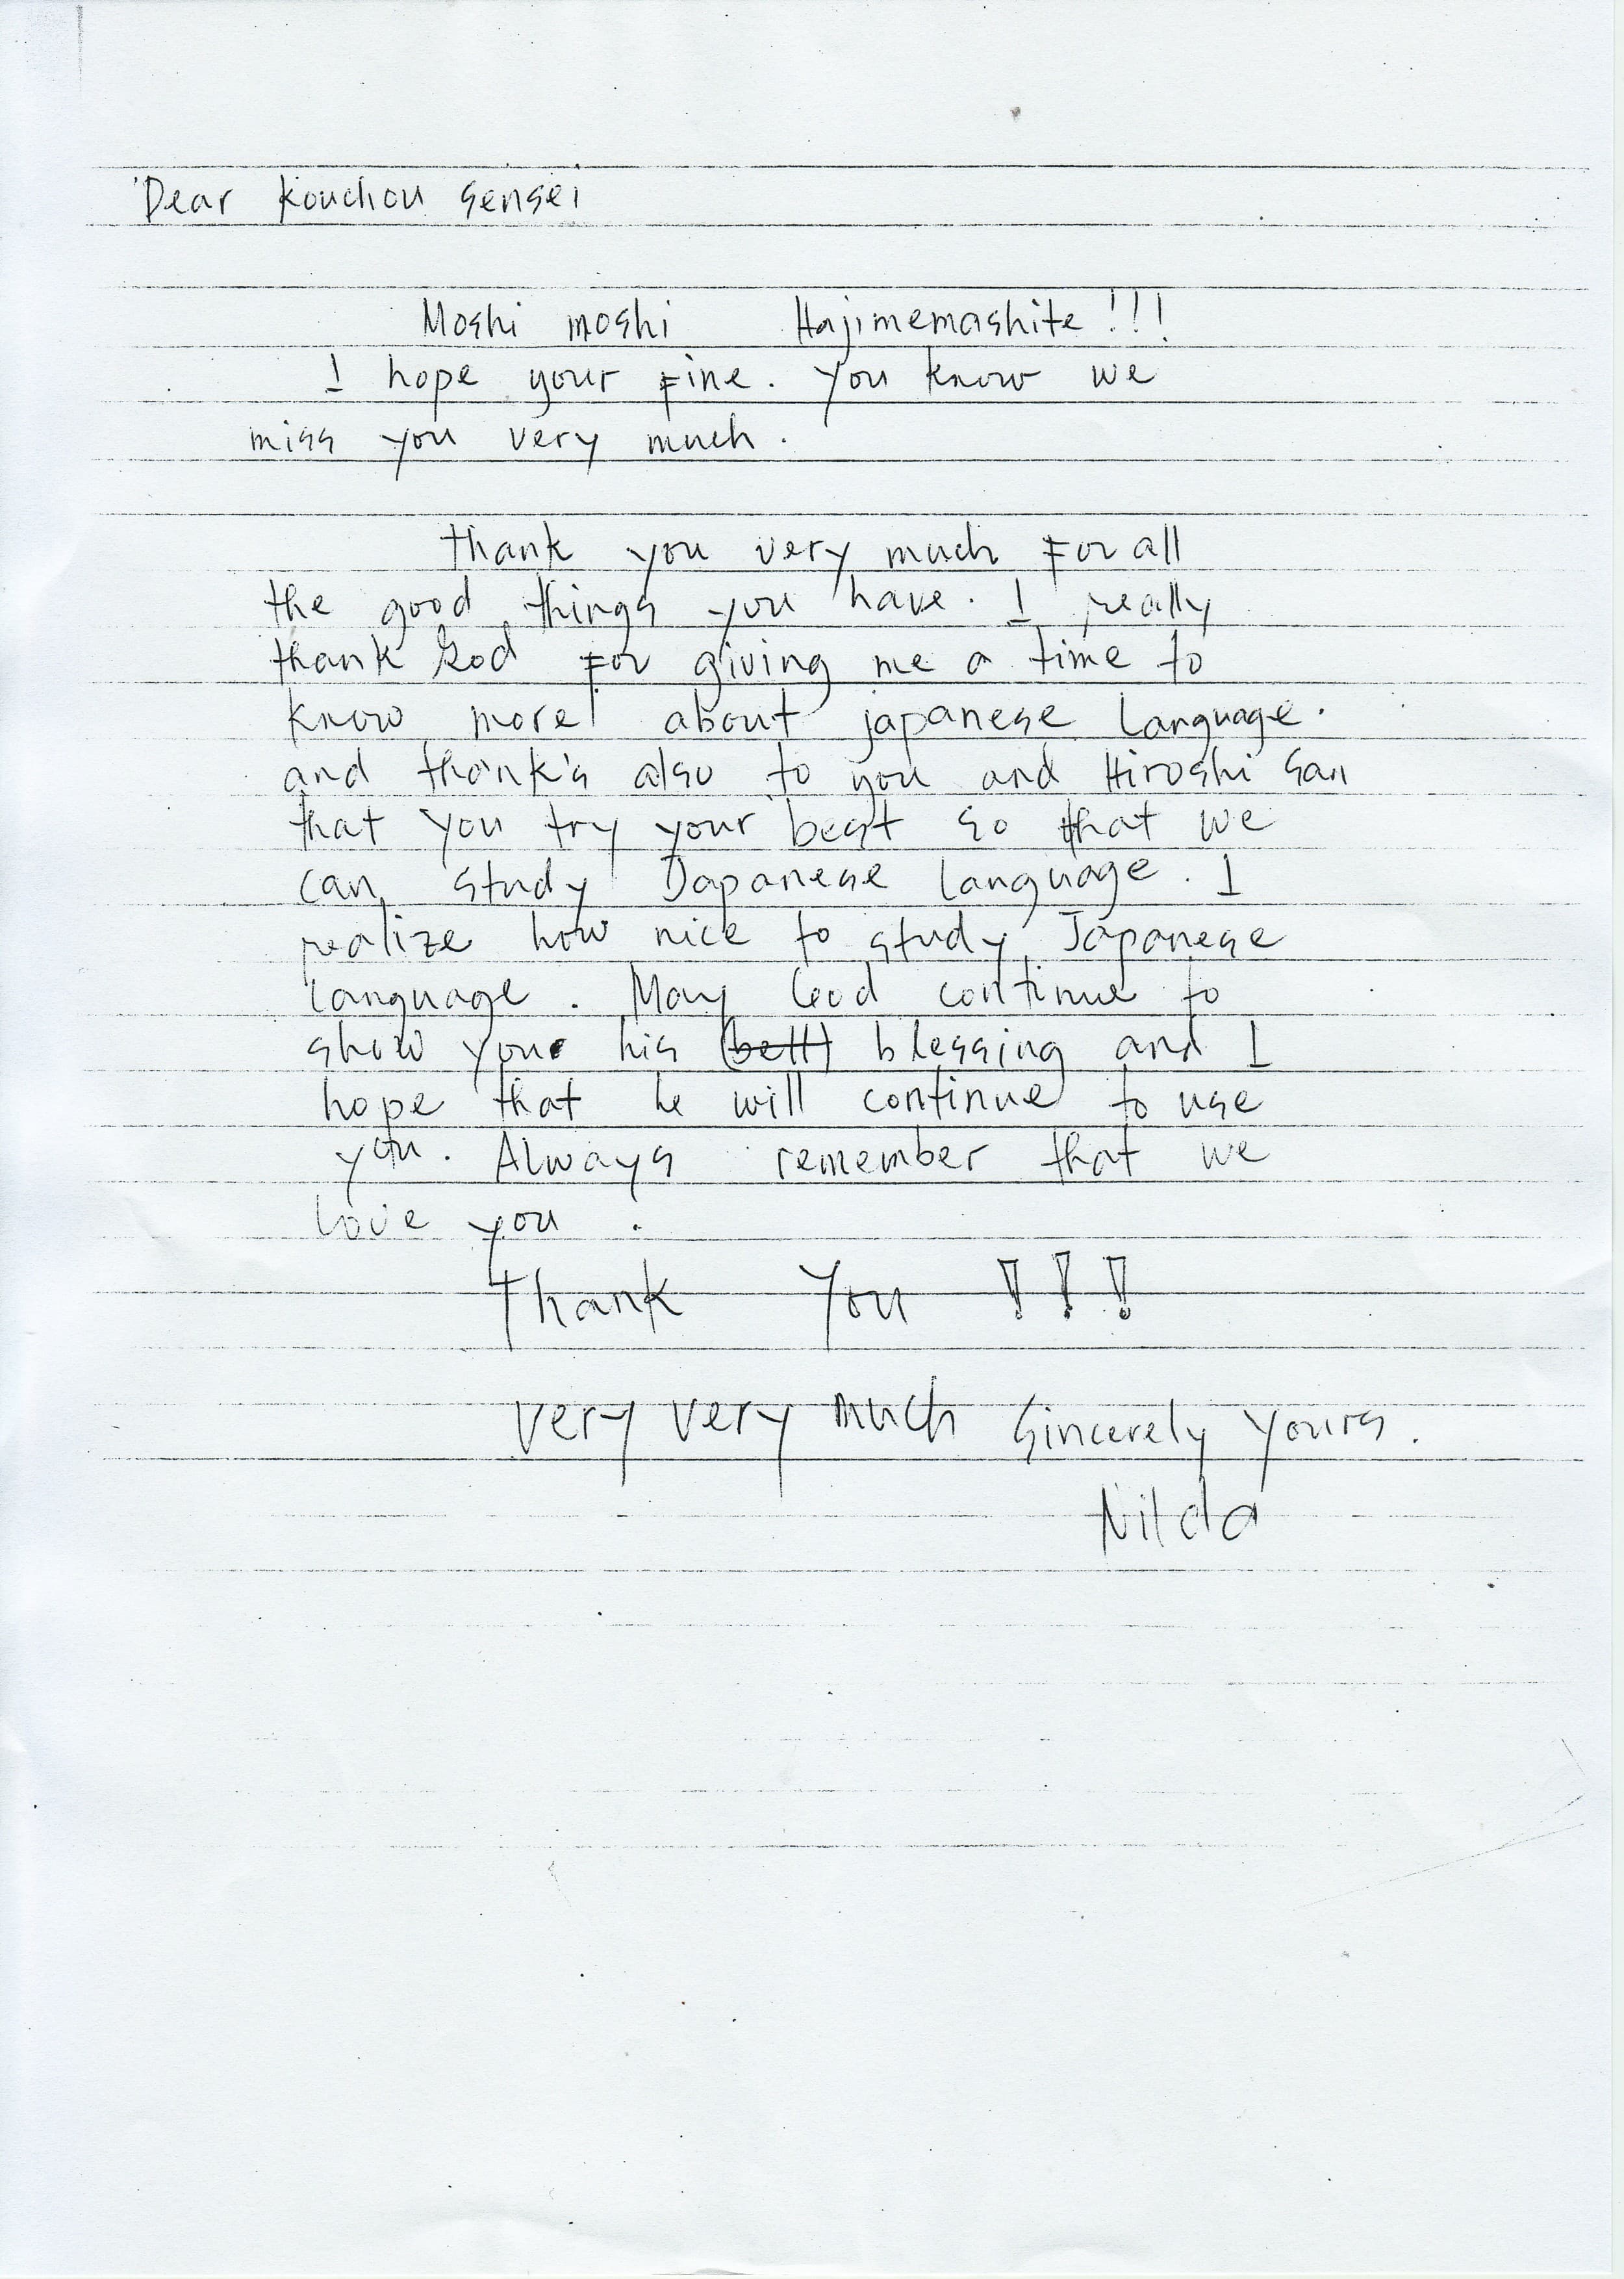 Dear Kouchou sensei
Moshi moshi Hajimemashite!!!
I hope your fine. You know we
miss you very much.
thank you very much For all
the good things you have. I really
thank God For giving me a time to
know more about japanese Language.
and thank's also to you and Hiroshi San
that you try your best so that we
can study Japanese Language. I
realize how nice to study Japanese
Language. May God continue to
show your his (bett) blessing and I
hope that he will continue to use
you. Always remember that we
Love you.
Thank You !!!
very very much Sincerely Yours.
Nilda